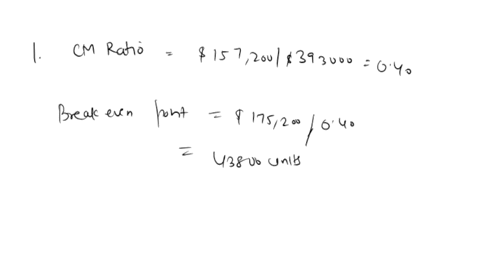 1. CM Ratio = $157,200/$393000 = 0.40
Break even point = $175,200/0.40
= 43800 units